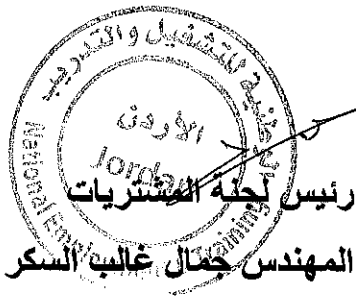 للتشغيل والتدريب
الأردن
Jordan
National
Training
رئيس لجنة المشتريات
المهندس جمال غالب السكر